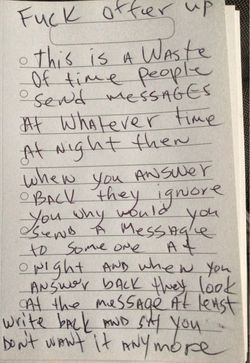 FUCK offer up
this is A WASte
Of time people
Send messAGES
At WhAtever time
At Night then
when you ANSwer
BACk they ignore
You why would you
Send A MessAgle
to Some one At
Night AND when you
ANSwer back they look
At the messAge At least
Write bACk AND SAY you
DoNt wANt it ANYmore